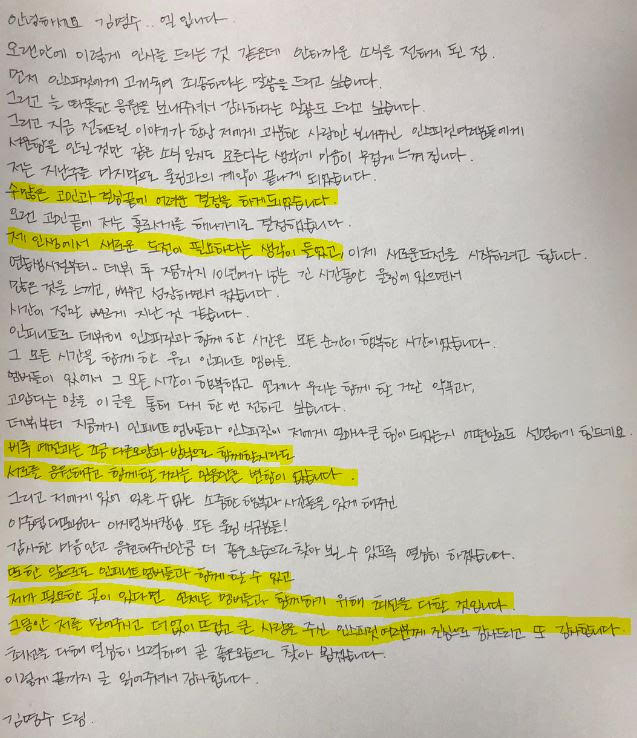 안녕하세요 김명수.. 엘 입니다.
오랜만에 이렇게 인사를 드리는 것 같은데 안타까운 소식을 전하게 된 점.
먼저 인스피릿에게 고개숙여 죄송하다는 말씀을 드리고 싶습니다.
그리고 늘 따뜻한 응원을 보내주셔서 감사하다는 말씀도 드리고 싶습니다.
그리고 지금 전해드릴 이야기가 항상 저에게 과분한 사랑만 보내주신 인스피릿여러분들에게
서운함을 안길 것만 같은 소식 일지도 모른다는 생각에 마음이 무겁게 느껴집니다.
저는 지난주를 마지막으로 울림과의 계약이 끝나게 되었습니다.
수많은 고민과 결심끝에 어려운 결정을 하게되었습니다
오랜 고민끝에 저는 홀로서기를 해나가기로 결정했습니다.
제 인생에서 새로운 도전이 필요하다는 생각이 들었고, 이제 새로운도전을 시작하려고 합니다.
연습생시절부터.. 데뷔 후 지금까지 10년여가 넘는 긴 시간동안 울림에 있으면서
많은 것을 느끼고, 배우고 성장하면서 컸습니다.
시간이 정말 빠르게 지난 것 같습니다.
인피니트로 데뷔해 인스피릿과 함께 한 시간은 모든 순간이 행복한 시간이였습니다.
그 모든 시간을 함께 한 우리 인피니트 멤버들.
멤버들이 있어서 그 모든 시간이 행복했고 언제나 우리는 함께 할 거란 약속과,
고맙다는 말을 이 글을 통해 다시 한 번 전하고 싶습니다.
데뷔부터 지금까지 인피니트멤버들과 인스피릿이 저에게 얼마나 큰 힘이 되었는지 어떤말로도 설명하기 힘드네요.
비록 예전과는 조금 다른모양과 방식으로 함께할지라도
서로를 응원해주고 함께할 거라는 믿음만은 변함이 없습니다.
그리고 저에게 있어 잊을 수 없는 소중한 행복과 시간들을 있게 해주신
이중엽대표님과 이지영부사장님 모든 울림 식구분들!
감사한 마음안고 응원해주신만큼 더 좋은 모습으로 찾아 뵐 수 있도록 열심히 하겠습니다.
또한 앞으로도 인피니트멤버들과 함께 할 수 있고
제가 필요한 곳이 있다면 언제든 멤버들과 함께하기 위해 최선을 다할 것입니다
그동안 저를 믿어주시고 더없이 뜨겁고 큰 사랑을 주신 인스피릿여러분께 진심으로 감사드리고 또 감사합니다.
최선을 다해 열심히 노력하여 곧 좋은모습으로 찾아 뵙겠습니다.
이렇게 끝까지 글 읽어주셔서 감사합니다.
김명수 드림.